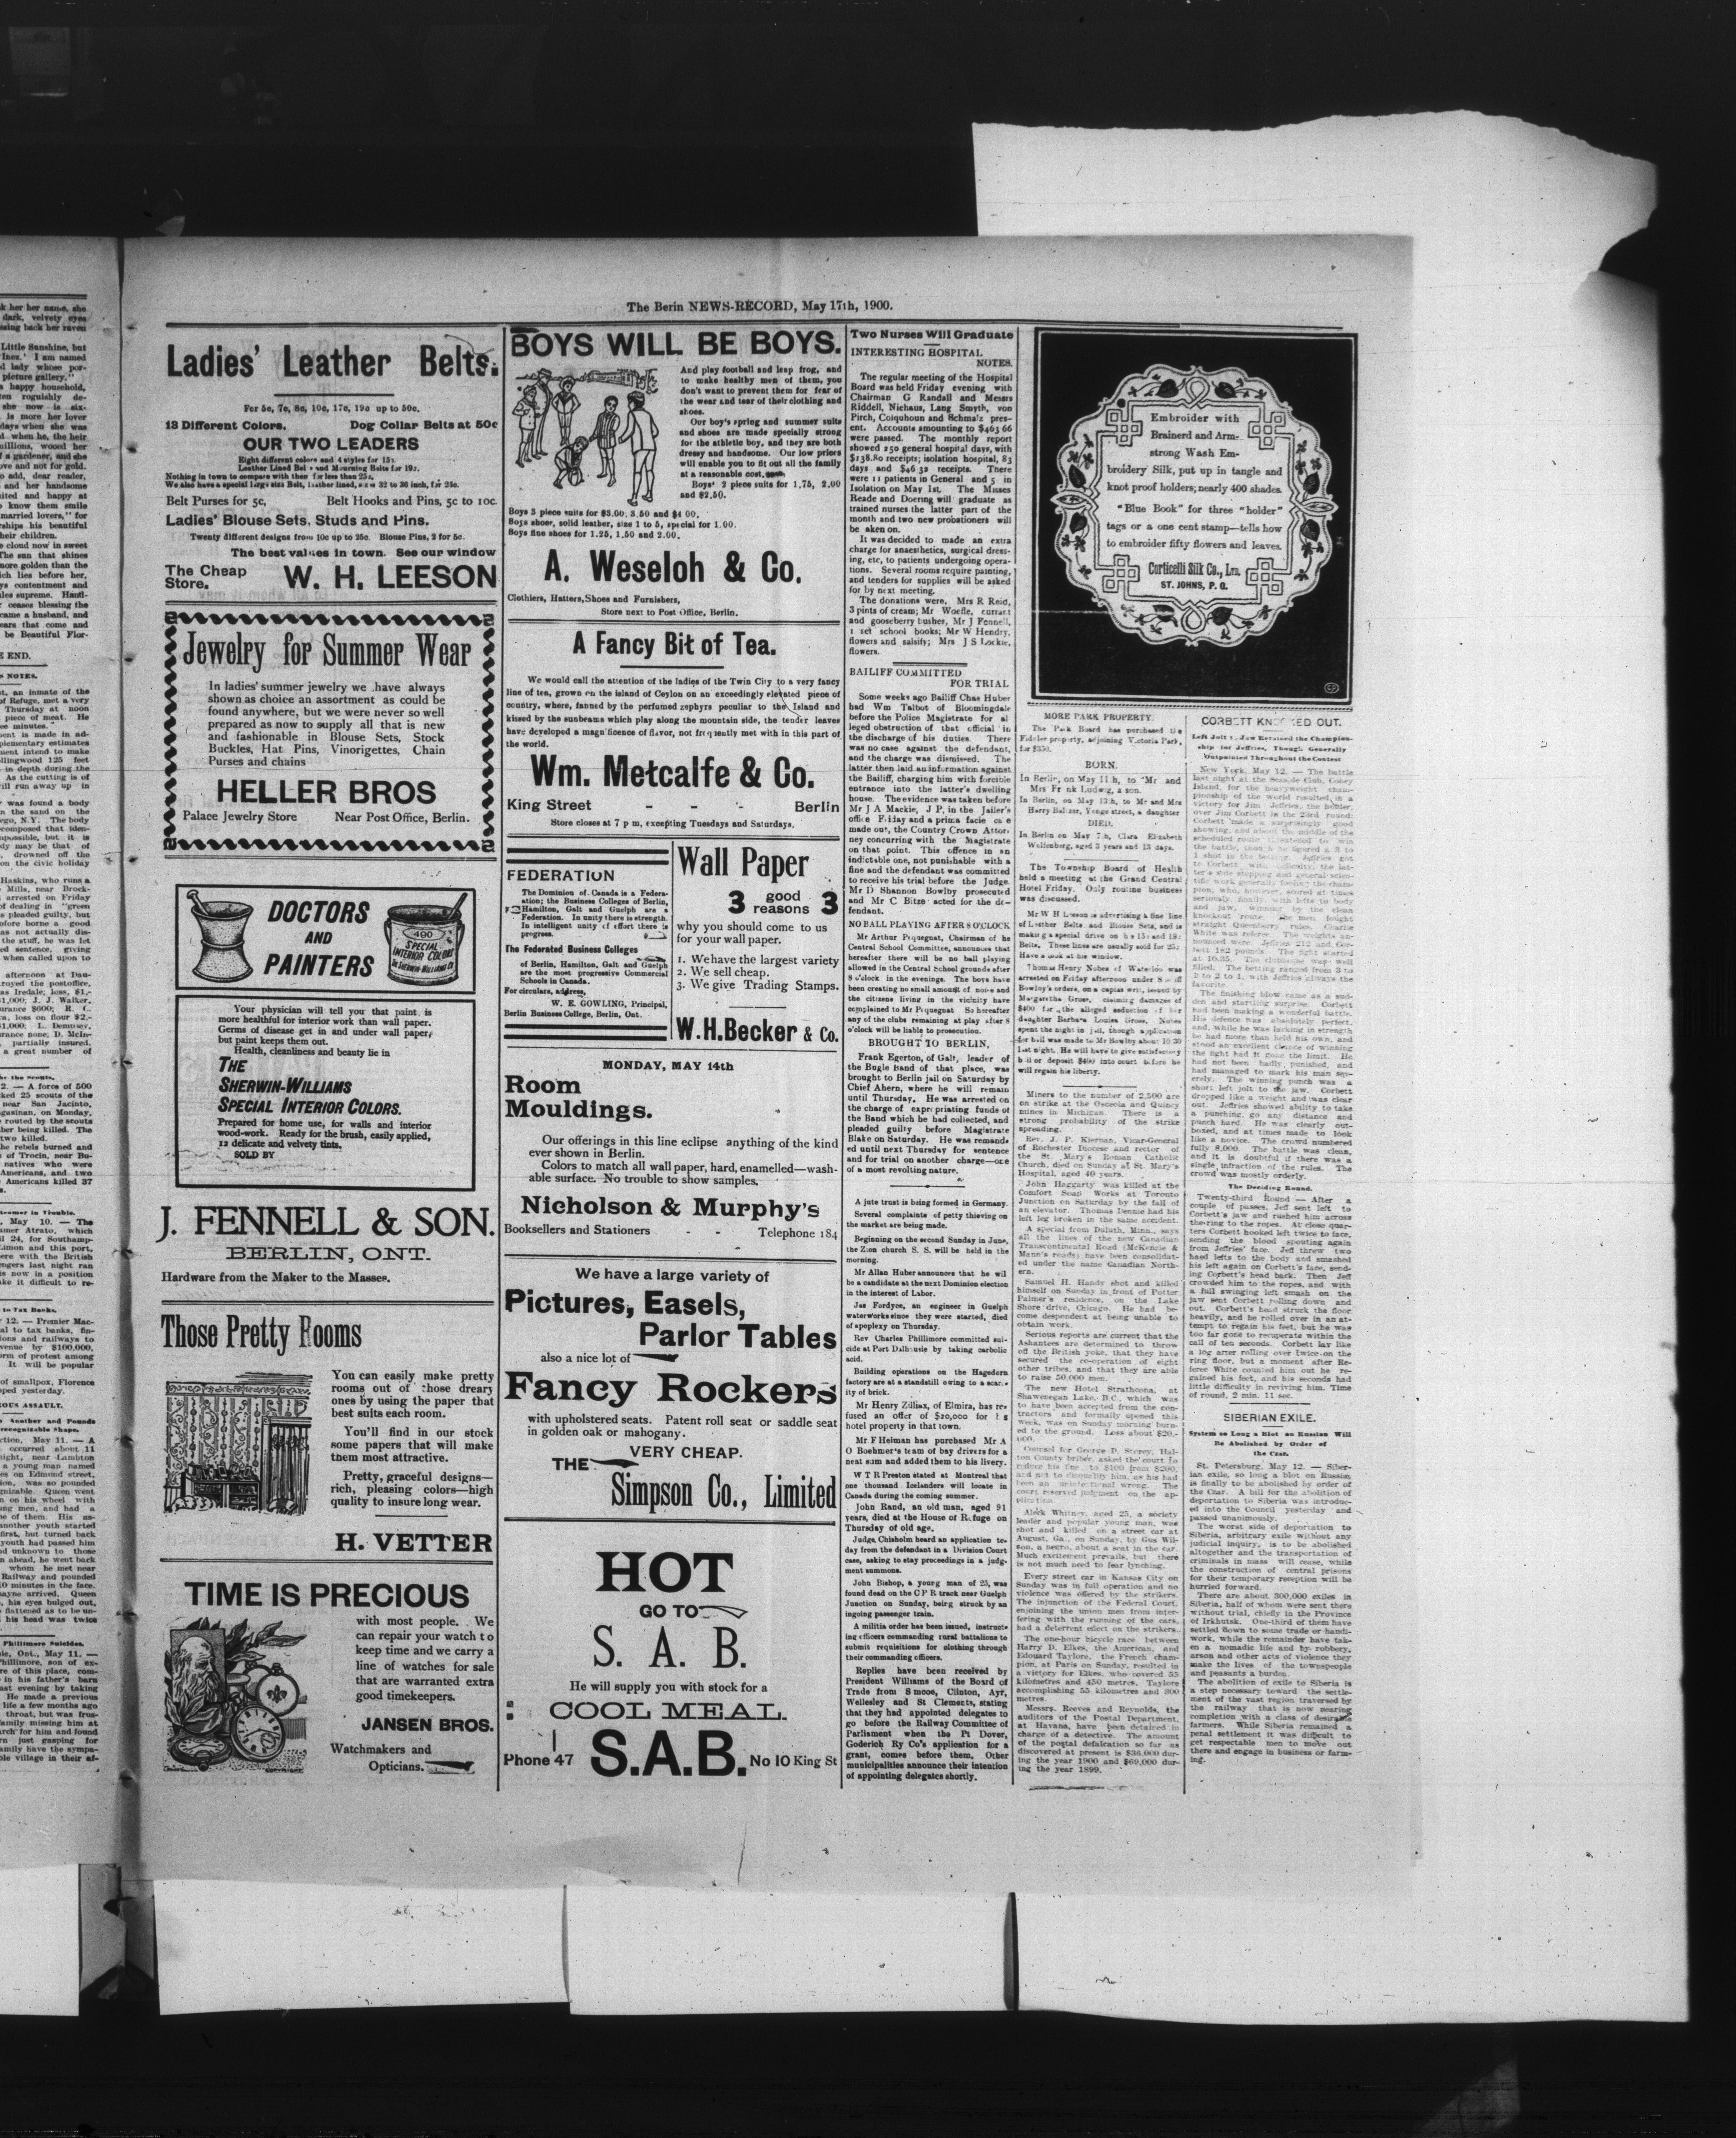 The Berin NEWS-RECORD, May 17th, 1900.
Ladies' Leather Belts.
For 5c, 7c, 8c, 10c, 17c, 19c up to 50c.
13 Different Colors. Dog Collar Belts at 50c
OUR TWO LEADERS
Eight different colors and 4 styles for 15c.
Leather Lined Bel s and Mourning Belts for 19c.
Nothing in town to compare with them for less than 25c.
We also have a special large size Belt, leather lined, 32 to 36 inch, for 25c.
Belt Purses for 5c, Belt Hooks and Pins, 5c to 10c.
Ladies' Blouse Sets, Studs and Pins.
Twenty different designs from 10c up to 25c. Blouse Pins, 2 for 5c.
The best values in town. See our window
The Cheap
Store. W. H. LEESON
Jewelry for Summer Wear
In ladies' summer jewelry we have always
shown as choice an assortment as could be
found anywhere, but we were never so well
prepared as now to supply all that is new
and fashionable in Blouse Sets, Stock
Buckles, Hat Pins, Vinorigettes, Chain
Purses and chains
HELLER BROS
Palace Jewelry Store Near Post Office, Berlin.
DOCTORS
AND
PAINTERS
490
SPECIAL
INTERIOR COLORS
THE SHERWIN-WILLIAMS CO.
Your physician will tell you that paint is
more healthful for interior work than wall paper.
Germs of disease get in and under wall paper,
but paint keeps them out.
Health, cleanliness and beauty lie in
THE
SHERWIN-WILLIAMS
SPECIAL INTERIOR COLORS.
Prepared for home use, for walls and interior
wood-work. Ready for the brush, easily applied,
12 delicate and velvety tints.
SOLD BY
J. FENNELL & SON.
BERLIN, ONT.
Hardware from the Maker to the Masses.
Those Pretty Rooms
You can easily make pretty
rooms out of those dreary
ones by using the paper that
best suits each room.
You'll find in our stock
some papers that will make
tnem most attractive.
Pretty, graceful designs—
rich, pleasing colors—high
quality to insure long wear.
H. VETTER
TIME IS PRECIOUS
with most people. We
can repair your watch to
keep time and we carry a
line of watches for sale
that are warranted extra
good timekeepers.
JANSEN BROS.
Watchmakers and
Opticians.
BOYS WILL BE BOYS.
And play football and leap frog, and
to make healthy men of them, you
don't want to prevent them for fear of
the wear and tear of their clothing and
shoes.
Our boy's spring and summer suits
and shoes are made specially strong
for the athletic boy, and they are both
dressy and handsome. Our low prices
will enable you to fit out all the family
at a reasonable cost.
Boys' 2 piece suits for 1.75, 2.00
and $2.50.
Boys 3 piece suits for $3.00, 3.50 and $4 00.
Boys shoes, solid leather, size 1 to 5, special for 1.00.
Boys fine shoes for 1.25, 1.50 and 2.00.
A. Weseloh & Co.
Clothiers, Hatters, Shoes and Furnishers,
Store next to Post Office, Berlin.
A Fancy Bit of Tea.
We would call the attention of the ladies of the Twin City to a very fancy
line of tea, grown on the island of Ceylon on an exceedingly elevated piece of
country, where, fanned by the perfumed zephyrs peculiar to the Island and
kissed by the sunbeams which play along the mountain side, the tender leaves
have developed a magnificence of flavor, not frequently met with in this part of
the world.
Wm. Metcalfe & Co.
King Street - - - Berlin
Store closes at 7 p m, excepting Tuesdays and Saturdays.
FEDERATION
The Dominion of Canada is a Federa-
ation; the Business Colleges of Berlin,
Hamilton, Galt and Guelph are a
Federation. In unity there is strength.
In intelligent unity of effort there is
progress.
The Federated Business Colleges
of Berlin, Hamilton, Galt and Guelph
are the most progressive Commercial
Schools in Canada.
For circulars, address,
W. E. GOWLING, Principal,
Berlin Business College, Berlin, Ont.
Wall Paper
3 good
reasons 3
why you should come to us
for your wall paper.
1. We have the largest variety
2. We sell cheap.
3. We give Trading Stamps.
W.H.Becker & Co.
MONDAY, MAY 14th
Room
Mouldings.
Our offerings in this line eclipse anything of the kind
ever shown in Berlin.
Colors to match all wall paper, hard, enamelled—wash-
able surface. No trouble to show samples.
Nicholson & Murphy's
Booksellers and Stationers - - Telephone 184
We have a large variety of
Pictures, Easels,
Parlor Tables
also a nice lot of
Fancy Rockers
with upholstered seats. Patent roll seat or saddle seat
in golden oak or mahogany.
VERY CHEAP.
THE
Simpson Co., Limited
HOT
GO TO
S. A. B.
He will supply you with stock for a
COOL MEAL.
Phone 47 S.A.B. No 10 King St
Two Nurses Will Graduate
INTERESTING HOSPITAL
NOTES.
The regular meeting of the Hospital
Board was held Friday evening with
Chairman G Randall and Messrs
Riddell, Niehaus, Lang Smyth, von
Pirch, Colquhoun and Schmalz pres-
ent. Accounts amounting to $463 66
were passed. The monthly report
showed 250 general hospital days, with
$138.80 receipts; isolation hospital, 83
days and $46 32 receipts. There
were 11 patients in General and 5 in
Isolation on May 1st. The Misses
Reade and Doering will graduate as
trained nurses the latter part of the
month and two new probationers will
be aken on.
It was decided to make an extra
charge for anaesthetics, surgical dress-
ing, etc, to patients undergoing opera-
tions. Several rooms require painting,
and tenders for supplies will be asked
for by next meeting.
The donations were, Mrs R Reid,
3 pints of cream; Mr Woefle, currant
and gooseberry bushes, Mr J Fennell,
1 set school books; Mr W Hendry,
flowers and salsify; Mrs J S Lockie,
flowers.
BAILIFF COMMITTED
FOR TRIAL
Some weeks ago Bailiff Chas Huber
had Wm Talbot of Bloomingdale
before the Police Magistrate for al
leged obstruction of that official in
the discharge of his duties. There
was no case against the defendant,
and the charge was dismissed. The
latter then laid an information against
the Bailiff, charging him with forcible
entrance into the latter's dwelling
house. The evidence was taken before
Mr J A Mackie, J P, in the Jailer's
office Friday and a prima facie case
made out, the Country Crown Attor-
ney concurring with the Magistrate
on that point. This offence in an
indictable one, not punishable with a
fine and the defendant was committed
to receive his trial before the Judge.
Mr D Shannon Bowlby prosecuted
and Mr C Bitze acted for the de-
fendant.
NO BALL PLAYING AFTER 8 O'CLOCK
Mr Arthur Pequegnat, Chairman of he
Central School Committee, announces that
hereafter there will be no ball playing
allowed in the Central School grounds after
8 o'clock in the evenings. The boys have
been creating no small amount of noise and
the citizens living in the vicinity have
complained to Mr Pequegnat So hereafter
any of the clubs remaining at play after 8
o'clock will be liable to prosecution.
BROUGHT TO BERLIN,
Frank Egerton, of Galt, leader of
the Bugle Band of that place, was
brought to Berlin jail on Saturday by
Chief Ahern, where he will remain
until Thursday. He was arrested on
the charge of expropriating funds of
the Band which he had collected, and
pleaded guilty before Magistrate
Blake on Saturday. He was remand
ed until Thursday next for sentence
and for trial on another charge—one
of a most revolting nature.
A jute trust is being formed in Germany.
Several complaints of petty thieving on
the market are being made.
Beginning on the second Sunday in June,
the Zion church S. S. will be held in the
morning.
Mr Allan Huber announces that he wil
be a candidate at the next Dominion election
in the interest of Labor.
Jas Fordyce, an engineer in Guelph
waterworks since they were started, died
of apoplexy on Thursday.
Rev Charles Phillimore committed sui-
cide at Port Dalhousie by taking carbolic
acid.
Building operations on the Hagedorn
factory are at a standstill owing to a scarc-
ity of brick.
Mr Henry Zilliax, of Elmira, has re
fused an offer of $20,000 for his
hotel property in that town.
Mr F Heiman has purchased Mr A
O Boehmer's team of bay drivers for a
neat sum and added them to his livery.
W T R Preston stated at Montreal that
one thousand Icelanders will locate in
Canada during the coming summer.
John Rand, an old man, aged 91
years, died at the House of Refuge on
Thursday of old age.
Judge Chisholm heard an application to-
day from the defendant in a Division Court
case, asking to stay proceedings in a judg-
ment summons.
John Bishop, a young man of 25, was
found dead on the C P R track near Guelph
Junction on Sunday, being struck by an
ingoing passenger train.
A militia order has been issued, instruct-
ing officers commanding rural battalions to
submit requisitions for clothing through
their commanding officers.
Replies have been received by
President Williams of the Board of
Trade from Simcoe, Clinton, Ayr,
Wellesley and St Clements, stating
that they had appointed delegates to
go before the Railway Committee of
Parliament when the Pt Dover,
Goderich Ry Co's application for a
grant, comes before them. Other
municipalities announce their intention
of appointing delegates shortly.
Embroider with
Brainerd and Arm-
strong Wash Em-
broidery Silk, put up in tangle and
knot proof holders; nearly 400 shades.
"Blue Book" for three "holder"
tags or a one cent stamp—tells how
to embroider fifty flowers and leaves.
Corticelli Silk Co., Ltd.
ST. JOHNS, P. Q.
MORE PARK PROPERTY.
The Park Board has purchased the
Fidler property, adjoining Victoria Park,
for $350.
BORN.
In Berlin, on May 11 h, to Mr and
Mrs Fr nk Ludwig, a son.
In Berlin, on May 13th, to Mr and Mrs
Harry Baltzer, Yonge street, a daughter
DIED.
In Berlin on May 7th, Clara Elizabeth
Walfenberg, aged 3 years and 13 days.
The Township Board of Health
held a meeting at the Grand Central
Hotel Friday. Only routine business
was discussed.
Mr W H Leeson is advertising a fine line
of Leather Belts and Blouse Sets, and is
making a special drive on his 15c and 19c
Belts. These lines are usually sold for 25c
Have a look at his window.
Thomas Henry Nobes of Waterloo was
arrested on Friday afternoon under Sheriff
Bowley's orders, on a capias writ, issued by
Margaretha Gross, claiming damages of
$400 for the alleged seduction of her
daughter Barbara Louisa Gross. Nobes
spent the night in jail, though application
for bail was made to Mr Bowlby about 10 30
last night. He will have to give satisfactory
bail or deposit $400 into court before he
will regain his liberty.
Miners to the number of 2,500 are
on strike at the Osceola and Quincy
mines in Michigan. There is a
strong probability of the strike
spreading.
Rev. J. P. Kiernan, Vicar-General
of Rochester Diocese and rector of
the St. Mary's Roman Catholic
Church, died on Sunday at St. Mary's
Hospital, aged 40 years.
John Haggarty was killed at the
Comfort Soap Works at Toronto
Junction on Saturday by the fall of
an elevator. Thomas Dennie had his
left leg broken in the same accident.
A special from Duluth, Minn., says
all the lines of the new Canadian
Transcontinental Road (McKenzie &
Mann's roads) have been consolidat-
ed under the name Canadian North-
ern.
Samuel H. Handy shot and killed
himself on Sunday in front of Potter
Palmer's residence, on the Lake
Shore drive, Chicago. He had be-
come despondent at being unable to
obtain work.
Serious reports are current that the
Ashantees are determined to throw
off the British yoke, that they have
secured the co-operation of eight
other tribes, and that they are able
to raise 50,000 men.
The new Hotel Strathcona, at
Shawenegan Lake, B.C., which was
to have been accepted from the con-
tractors and formally opened this
week, was on Sunday morning burn-
ed to the ground. Loss about $20,-
000.
Counsel for George D. Storey, Hal-
ton County briber, asked the court to
reduce his fine to $100 from $200,
and not to disqualify him, as his had
been an unintentional wrong. The
court reserved judgment on the ap-
plication.
Aleck Whitney, aged 25, a society
leader and popular young man, was
shot and killed on a street car at
August, Ga., on Sunday, by Gus Wil-
son, a negro, about a seat in the car.
Much excitement prevails, but there
is not much need to fear lynching.
Every street car in Kansas City on
Sunday was in full operation and no
violence was offered by the strikers.
The injunction of the Federal Court,
enjoining the union men from inter-
fering with the running of the cars,
had a deterrent effect on the strikers.
The one-hour bicycle race between
Harry D. Elkes, the American, and
Edouard Taylore, the French cham-
pion, at Paris on Sunday, resulted in
a victory for Elkes, who covered 55
kilometres and 450 metres, Taylore
accomplishing 55 kilometres and 300
metres.
Messrs. Reeves and Reynolds, the
auditors of the Postal Department,
at Havana, have been detained in
charge of a detective. The amount
of the postal defalcation so far as
discovered at present is $36,000 dur-
ing the year 1900 and $69,000 dur-
ing the year 1899.
CORBETT KNOCKED OUT.
Left Jolt to Jaw Retained the Champion-
ship for Jeffries, Though Generally
Outpointed Throughout the Contest
New York, May 12. — The battle
last night at the Seaside Club, Coney
Island, for the heavyweight cham-
pionship of the world resulted in a
victory for Jim Jeffries, the holder,
over Jim Corbett in the 23rd round.
Corbett made a surprisingly good
showing, and about the middle of the
scheduled route threatened to win
the battle, though he figured a 3 to
1 shot in the betting. Jeffries got
to Corbett with difficulty, the lat-
ter's side stepping and general scien-
tific work generally fooling the cham-
pion, who, however, scored at times
seriously, finally, with lefts to body
and jaw, winning by the clean
knockout route. The men fought
straight Queensberry rules. Charlie
White was referee. The weights an-
nounced were: Jeffries 212 and Cor-
bett 182 pounds. The fight started
at 10.35. The clubhouse was well
filled. The betting ranged from 3 to
1 to 2 to 1, with Jeffries always the
favorite.
The finishing blow came as a sud-
den and startling surprise. Corbett
had been making a wonderful battle.
His defence was absolutely perfect,
and, while he was lacking in strength
he had more than held his own, and
stood an excellent chance of winning
the fight had it gone the limit. He
had not been badly punished, and
had managed to mark his man sev-
erely. The winning punch was a
short left jolt to the jaw. Corbett
dropped like a weight and was clear
out. Jeffries showed ability to take
a punching, go any distance and
punch hard. He was clearly out-
boxed, and at times made to look
like a novice. The crowd numbered
fully 8,000. The battle was clean,
and it is doubtful if there was a
single infraction of the rules. The
crowd was mostly orderly.
The Deciding Round.
Twenty-third Round — After a
couple of passes, Jeff sent left to
Corbett's jaw and rushed him across
the-ring to the ropes. At close quar-
ters Corbett hooked left twice to face,
sending the blood spouting again
from Jeffries' face. Jeff threw two
haed lefts to the body and smashed
his left again on Corbett's face, send-
ing Corbett's head back. Then Jeff
crowded him to the ropes, and with
a full swinging left smash on the
jaw sent Corbett rolling down and
out. Corbett's head struck the floor
heavily, and he rolled over in an at-
tempt to regain his feet, but he was
too far gone to recuperate within the
call of ten seconds. Corbett lay like
a log after rolling over twice on the
ring floor, but a moment after Re-
feree White counted him out he re-
gained his feet, and his seconds had
little difficulty in reviving him. Time
of round, 2 min. 11 sec.
SIBERIAN EXILE.
System so Long a Blot on Russian Will
Be Abolished by Order of
the Czar.
St. Petersburg, May 12. — Siber-
ian exile, so long a blot on Russian
is finally to be abolished by order of
the Czar. A bill for the abolition of
deportation to Siberia was introduc-
ed into the Council yesterday and
passed unanimously.
The worst side of deportation to
Siberia, arbitrary exile without any
judicial inquiry, is to be abolished
altogether and the transportation of
criminals in mass will cease, while
the construction of central prisons
for their temporary reception will be
hurried forward.
There are about 300,000 exiles in
Siberia, half of whom were sent there
without trial, chiefly in the Province
of Irkhutsk. One-third of them have
settled down to some trade or handi-
work, while the remainder have tak-
en a nomadic life and by robbery,
arson and other acts of violence they
make the lives of the townspeople
and peasants a burden.
The abolition of exile to Siberia is
a step necessary toward the settle-
ment of the vast region traversed by
the railway that is now nearing
completion with a class of desirable
farmers. While Siberia remained a
penal settlement it was difficult to
get respectable men to move out
there and engage in business or farm-
ing.